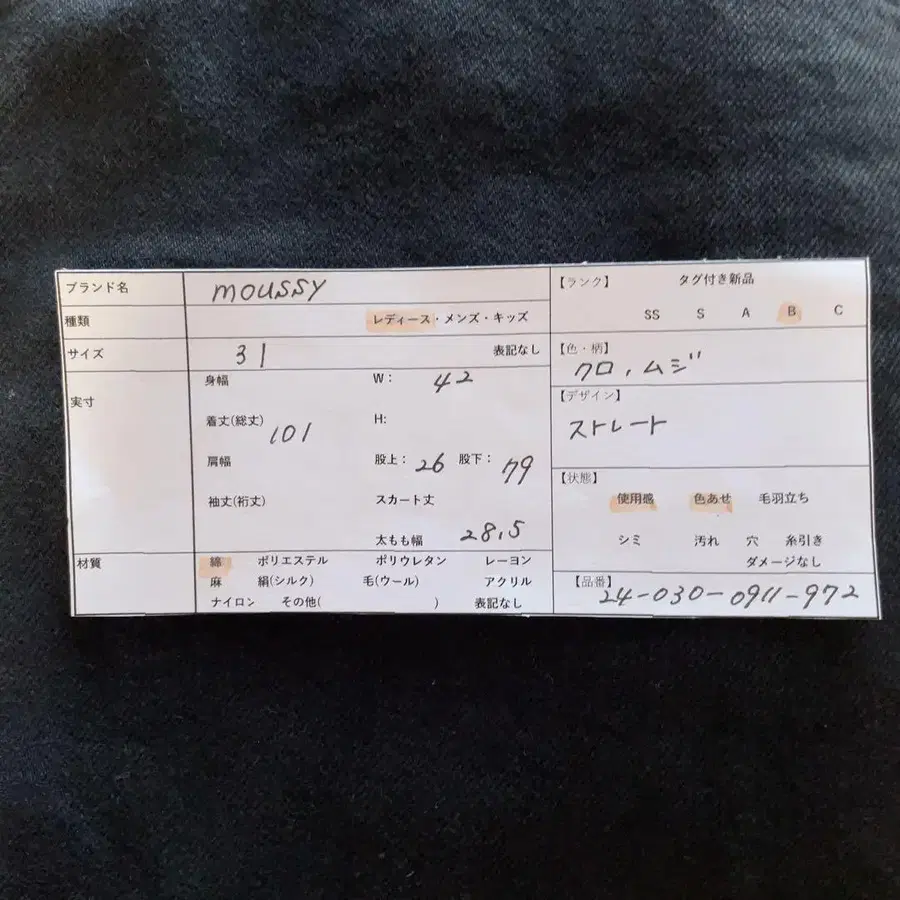 ブランド名 moussy
種類 レディース・メンズ・キッズ
サイズ 31 表記なし
実寸
身幅 W: 42
着丈(総丈) 101 H:
肩幅 股上: 26 股下: 79
袖丈(裄丈) スカート丈
太もも幅 28.5
材質 綿 ポリエステル ポリウレタン レーヨン
麻 絹(シルク) 毛(ウール) アクリル
ナイロン その他( ) 表記なし
【ランク】 タグ付き新品
SS S A B C
【色・柄】
クロ,ムジ
【デザイン】
ストレート
【状態】
使用感 色あせ 毛羽立ち
シミ 汚れ 穴 糸引き
ダメージなし
【品番】
24-030-0911-972